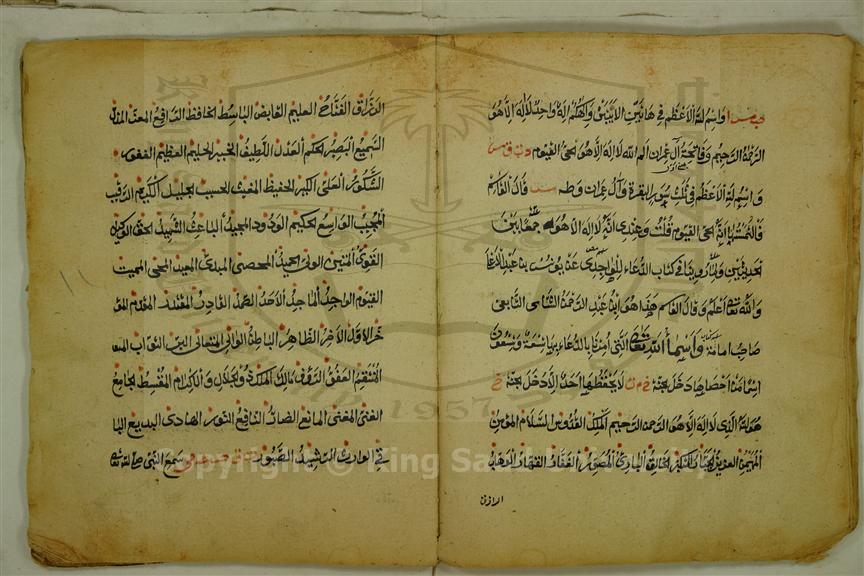 واسم الله الاعظم في هاتين الآيتين والهكم اله واحد لا اله الا هو
الرحمن الرحيم وفاتحة آل عمران الم الله لا اله الا هو الحي القيوم
واسم الله الاعظم في ثلث سور البقرة وآل عمران وطه قال القاسم
فالتمستها انه الحي القيوم قلت وعندي انه لا اله الا هو جمعا بين
الحديثين ولما روينا في كتاب الدعاء للواحدي عن يونس بن عبد الاعلى
والله تعالى اعلم وقال القاسم هذا هو ابن عبد الرحمن الشامي التابعي
صاحب ابي امامة واسماء الله تعالى التي امرنا بالدعاء بها تسعة وتسعون
اسما من احصاها دخل الجنة لا يحفظها احد الا دخل الجنة
هو الله الذي لا اله الا هو الرحمن الرحيم الملك القدوس السلام المؤمن
المهيمن العزيز الجبار المتكبر الخالق البارئ المصور الغفار القهار الوهاب
الرزاق
الرزاق الفتاح العليم القابض الباسط الخافض الرافع المعز المذل
السميع البصير الحكم العدل اللطيف الخبير الحليم العظيم الغفور
الشكور العلي الكبير الحفيظ المقيت الحسيب الجليل الكريم الرقيب
المجيب الواسع الحكيم الودود المجيد الباعث الشهيد الحق الوكيل
القوي المتين الولي الحميد المحصي المبدئ المعيد المحيي المميت
القيوم الواجد الماجد الاحد الصمد القادر المقتدر المقدم المؤ
خر الاول الآخر الظاهر الباطن الوالي المتعالي البر التواب
المنتقم العفو الرؤف مالك الملك ذو الجلال والاكرام المقسط الجامع
الغني المغني المانع الضار النافع النور الهادي البديع البا
قي الوارث الرشيد الصبور سمع النبي صلى الله تعالى
Copyright © King Saud University
1957